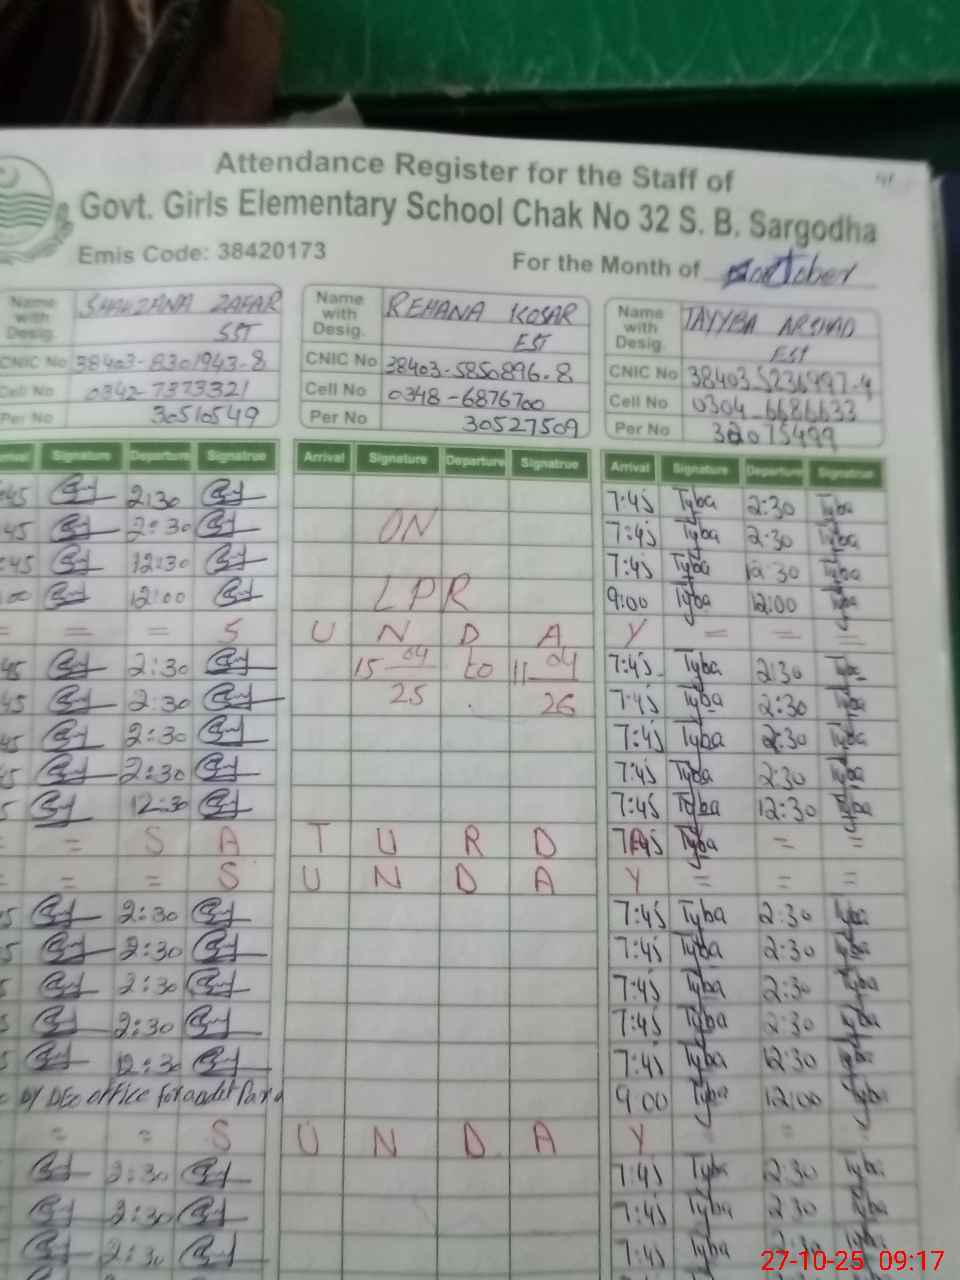 Attendance Register for the Staff of
Govt. Girls Elementary School Chak No 32 S. B. Sargodha
Emis Code: 38420173
For the Month of October
Name with Desig. SHAHZANA ZAFAR SST
CNIC No 38403-8301943-8
Cell No 0342-7373321
Per No 30510549
Name with Desig. REHANA KOSAR EST
CNIC No 38403-5850896-8
Cell No 0348-6876700
Per No 30527509
Name with Desig. TAYYBA ARSHAD EST
CNIC No 38403 5236997-4
Cell No 0304-6686633
Per No 32015499
Signature Departure Signatrue Arrival Signature Departure Signatrue Arrival Signature Departure Signatrue
:45 2:30 7:45 Tyba 2:30 Tyba
:45 2:30 ON 7:45 Tyba 2:30 Tyba
:45 12:30 7:45 Tyba 12:30 Tyba
:00 12:00 LPR 9:00 Tyba 12:00 Tyba
= = = S U N D A Y = = =
:45 2:30 15 04/25 to 11 04/26 7:45 Tyba 2:30 Tyba
:45 2:30 7:45 Tyba 2:30 Tyba
:45 2:30 7:45 Tyba 2:30 Tyba
2:30 7:45 Tyba 2:30 Tyba
12:30 7:45 Tyba 12:30 Tyba
= = S A T U R D A Y = =
= = = S U N D A Y = = =
2:30 7:45 Tyba 2:30 Tyba
2:30 7:45 Tyba 2:30 Tyba
2:30 7:45 Tyba 2:30 Tyba
2:30 7:45 Tyba 2:30 Tyba
12:30 7:45 Tyba 12:30 Tyba
by DEO office for audit Para 9:00 Tyba 12:00 Tyba
= = S U N D A Y = =
2:30 7:45 Tyba 2:30 Tyba
2:30 7:45 Tyba 2:30 Tyba
2:30 7:45 Tyba 2:30 Tyba
27-10-25 09:17